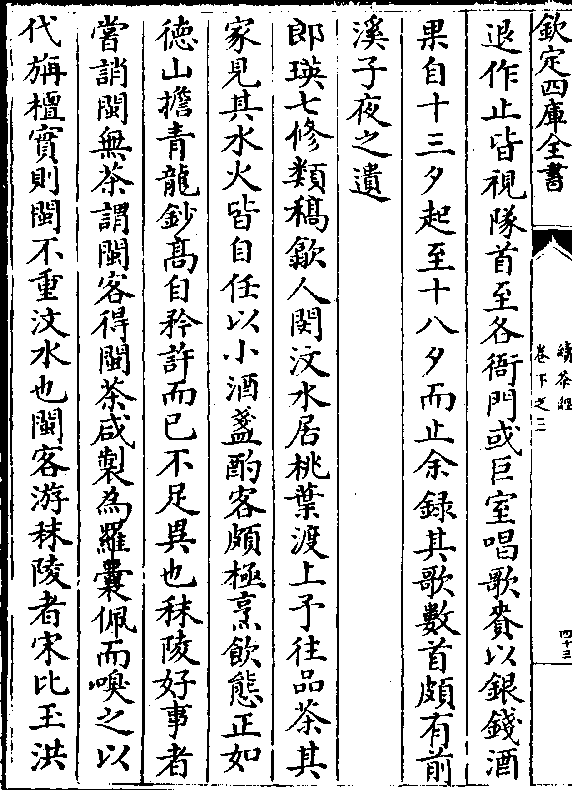 欽定四庫全書
續茶經
卷下之三
四十三
退作止皆視隊首至各衙門或巨室唱歌賚以銀錢酒
果自十三夕起至十八夕而止余録其歌數首頗有前
溪子夜之遺
郎瑛七修類稿歙人閔汶水居桃葉渡上予往品茶其
家見其水火皆自任以小酒盞酌客頗極烹飲態正如
徳山擔青龍鈔髙自矜許而已不足異也秣陵好事者
嘗誚閩無茶謂閩客得閩茶咸製為羅囊佩而嗅之以
代旃檀實則閩不重汶水也閩客游秣陵者宋比玉洪